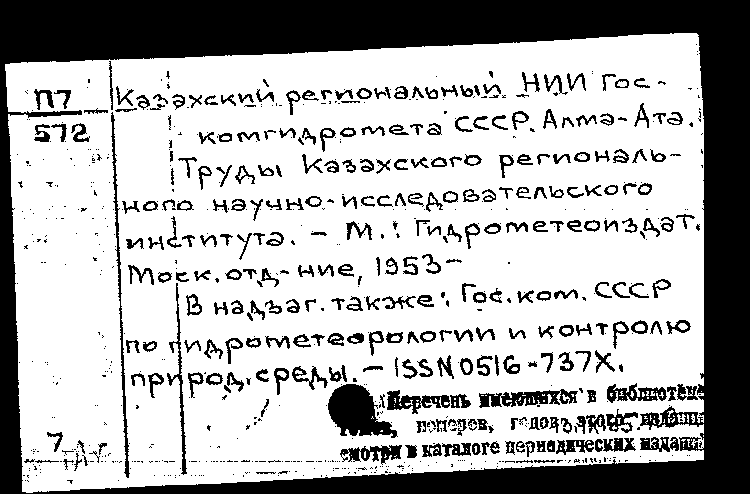 П7
572
Казахский региональный НИИ Гос-
комгидромета СССР. Алма-Ата.
Труды Казахского региональ-
ного научно-исследовательского
института. – М.: Гидрометеоиздат.
Моск. отд-ние, 1953–
В надзаг. также: Гос. ком. СССР
по гидрометеорологии и контролю
природ. среды. – ISSN 0516-737X.
Перечень имеющихся в библиотеке
номеров, годов этого издания
смотри в каталоге периодических изданий
7